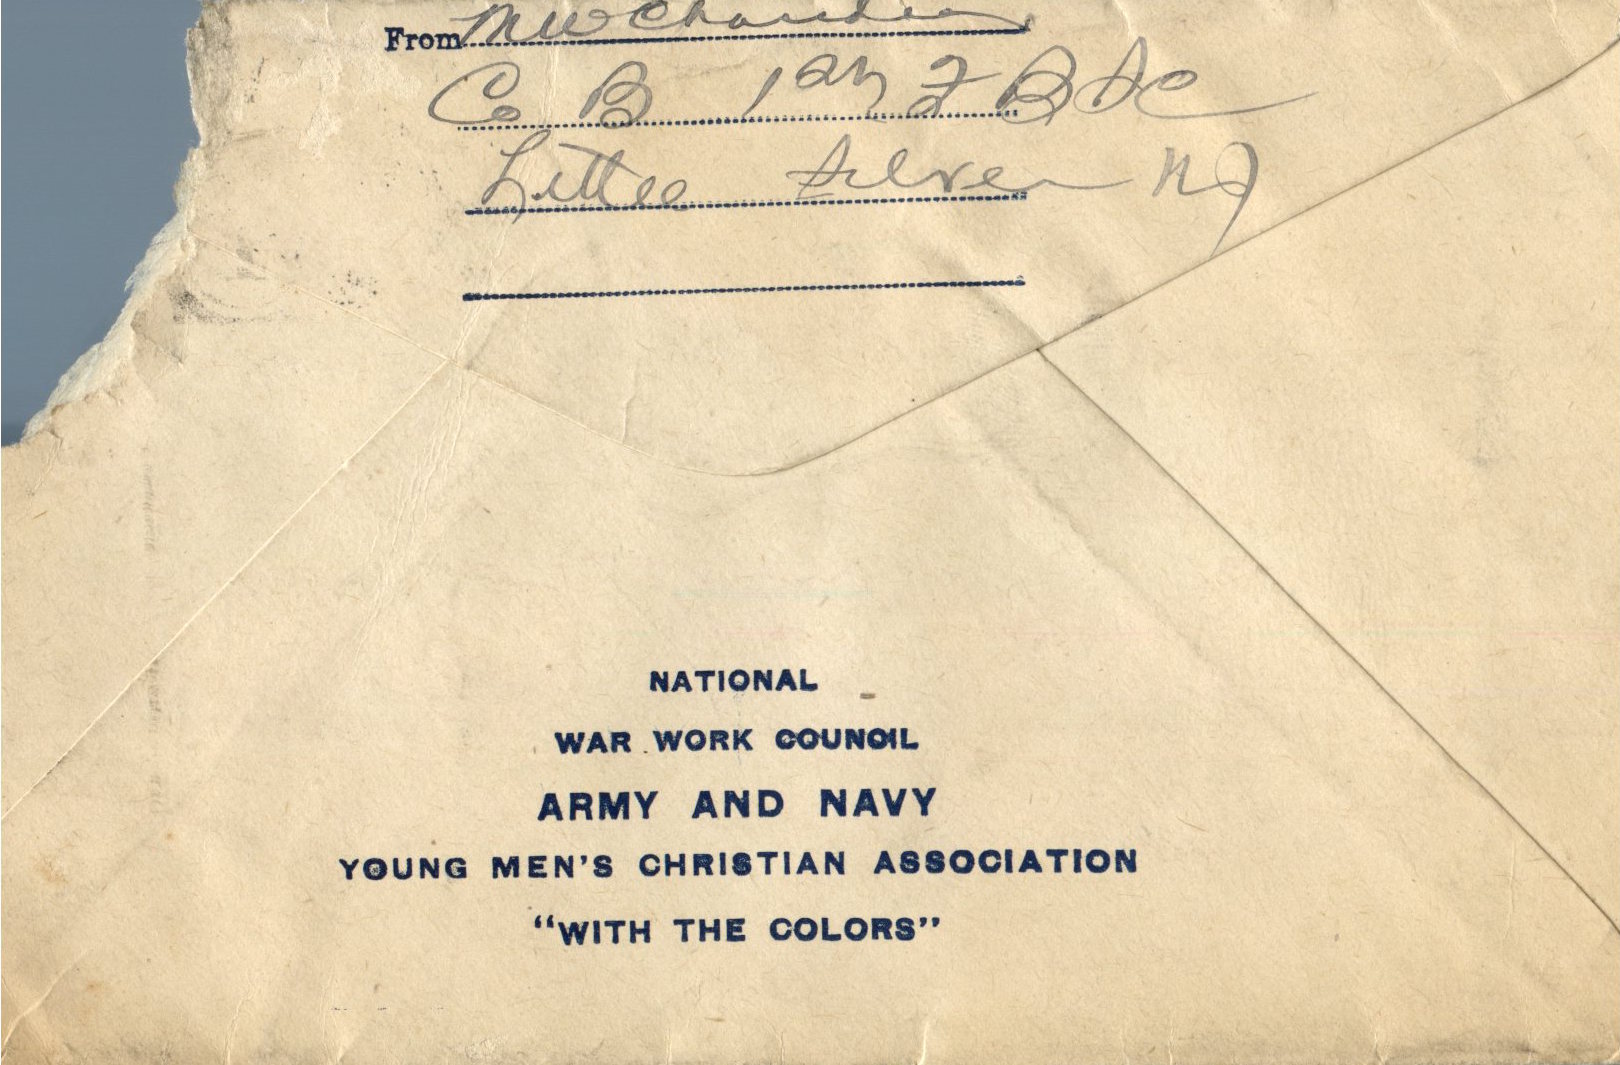 From M W Chandler
Co B 1st F B S C
Little Silver NJ
NATIONAL
WAR WORK COUNCIL
ARMY AND NAVY
YOUNG MEN'S CHRISTIAN ASSOCIATION
“WITH THE COLORS”